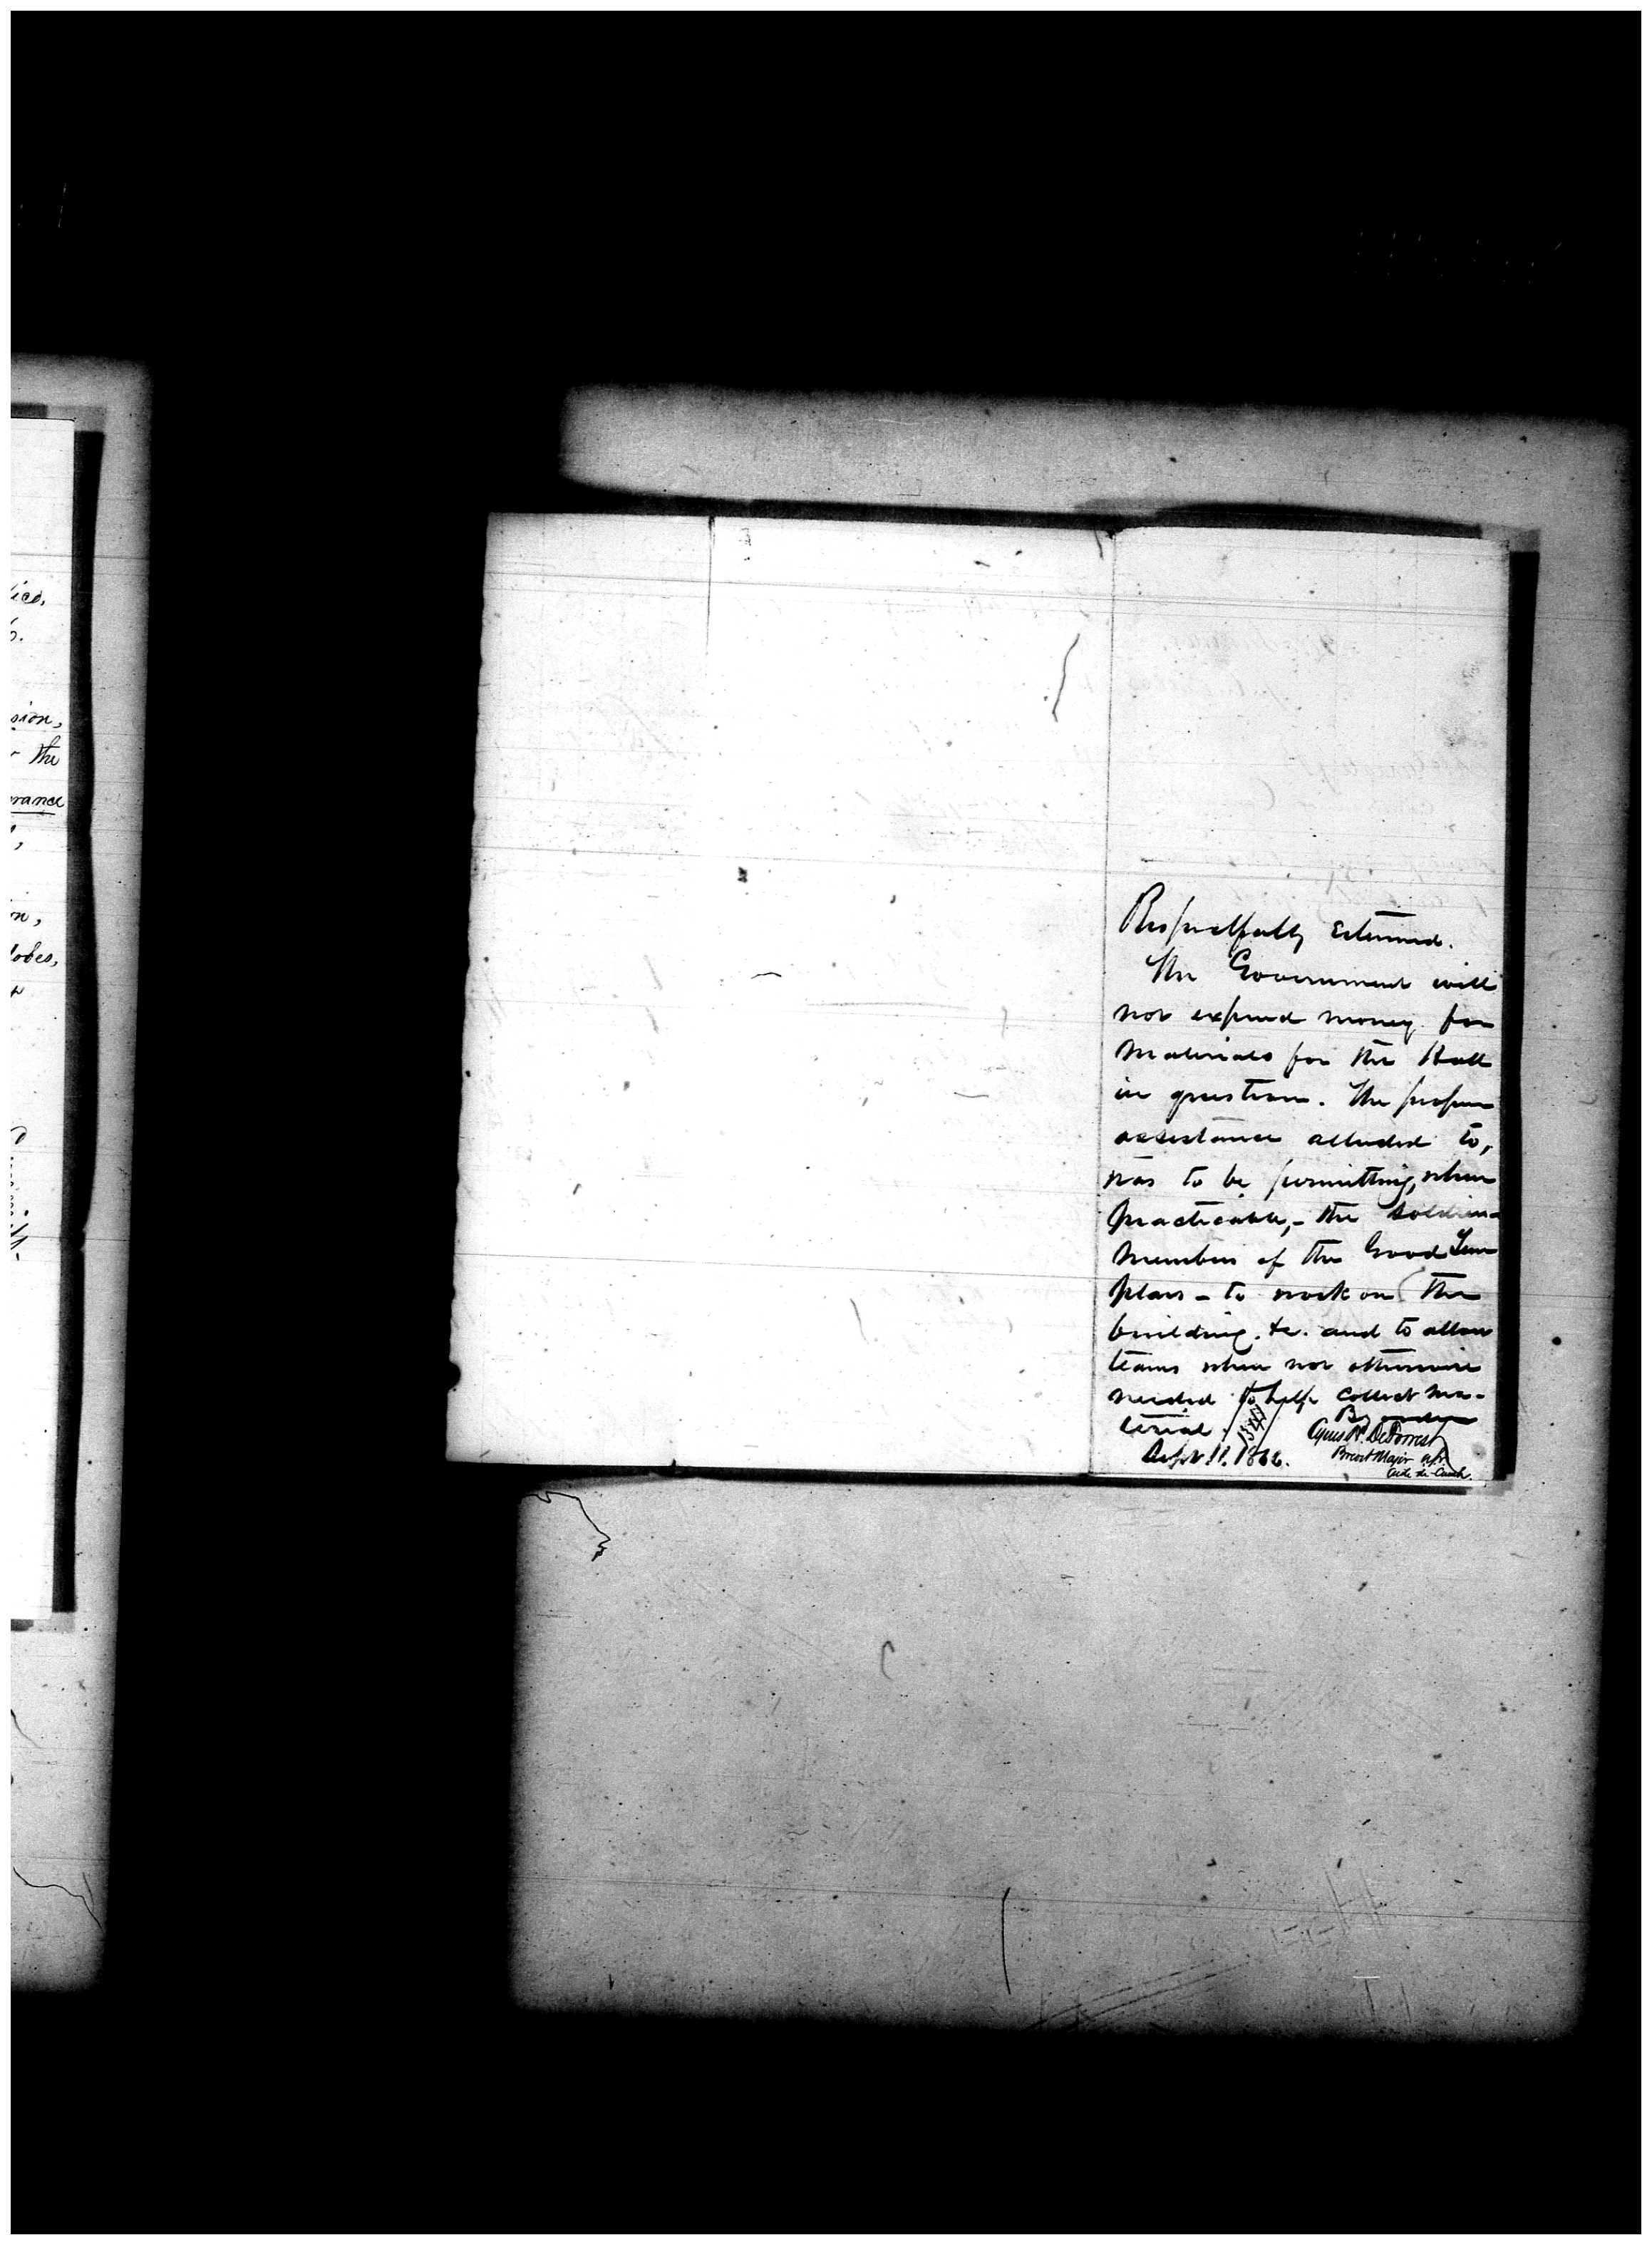 ico,
6.
sion,
the
rance
n,
lobes,
Respectfully returned.
The Government will
not expend money for
materials for the Hall
in question. The proper
assistance alluded to,
was to be permitting, when
practicable, – the soldiers
members of the Good Tem
plars – to work on the
building. &c. and to allow
teams when not otherwise
needed to help collect ma-
terial.
By order
Cyrus H. De Forrest
Brevet Major
Aide de Camp.
Sept 11. 1866.